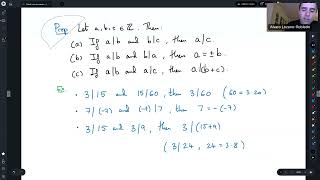 Prop Let a,b,c ∈ ℤ. Then:
(a) If a|b and b|c, then a|c.
(b) If a|b and b|a, then a = ±b.
(c) If a|b and a|c, then a|(b+c).
Ex.
• 3|15 and 15|60, then 3|60 (60=3·20)
• 7|(-7) and (-7)|7, then 7=-(-7)
• 3|15 and 3|9, then 3|(15+9)
(3|24, 24=3·8)
Álvaro Lozano-Robledo